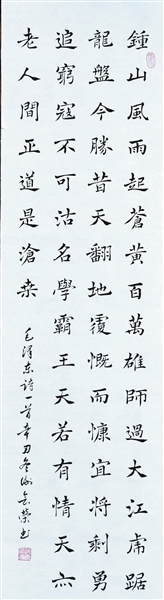 鍾山風雨起蒼黃百萬雄師過大江虎踞
龍盤今勝昔天翻地覆慨而慷宜將剩勇
追窮寇不可沽名學霸王天若有情天亦
老人間正道是滄桒
毛澤东詩一首辛丑冬榮书